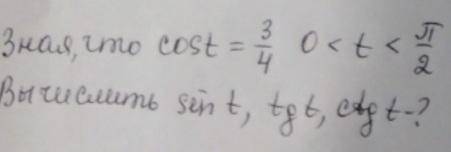 Зная, что cost = 3/4 0 < t < π/2
Вычислить sin t, tg t, ctg t-?